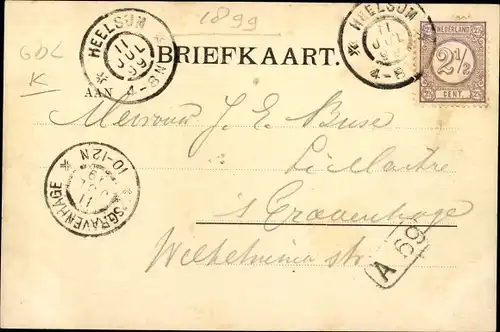 1899
GDL
K
HEELSUM
11
JUL
99
4-8N
HEELSUM
11
JUL
99
4-8
NEDERLAND
2 1/2
CENT.
BRIEFKAART.
AAN
Mevrouw J. E. Buse
's Gravenhage
Wilhelmina str.
'SGRAVENHAGE
10-12N
11
A 66